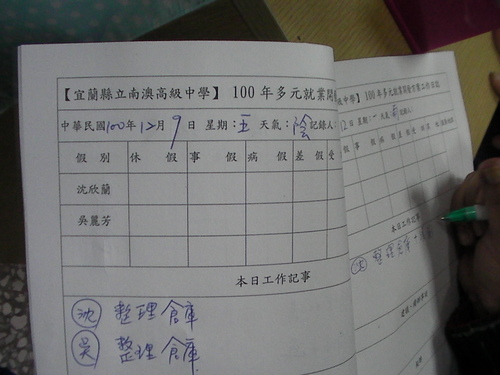 【宜蘭縣立南澳高級中學】 100年多元就業開
中華民國100年12月9日 星期：五 天氣：陰 記錄人：
假別 休假 事假 病假 差假 受
沈欣蘭
吳麗芳
本日工作記事
沈 整理倉庫
吳 整理倉庫
中學】100年多元就業開發方案工作日誌
12日 星期：一 天氣：雨 記錄人：
本日工作記事
沈 整理